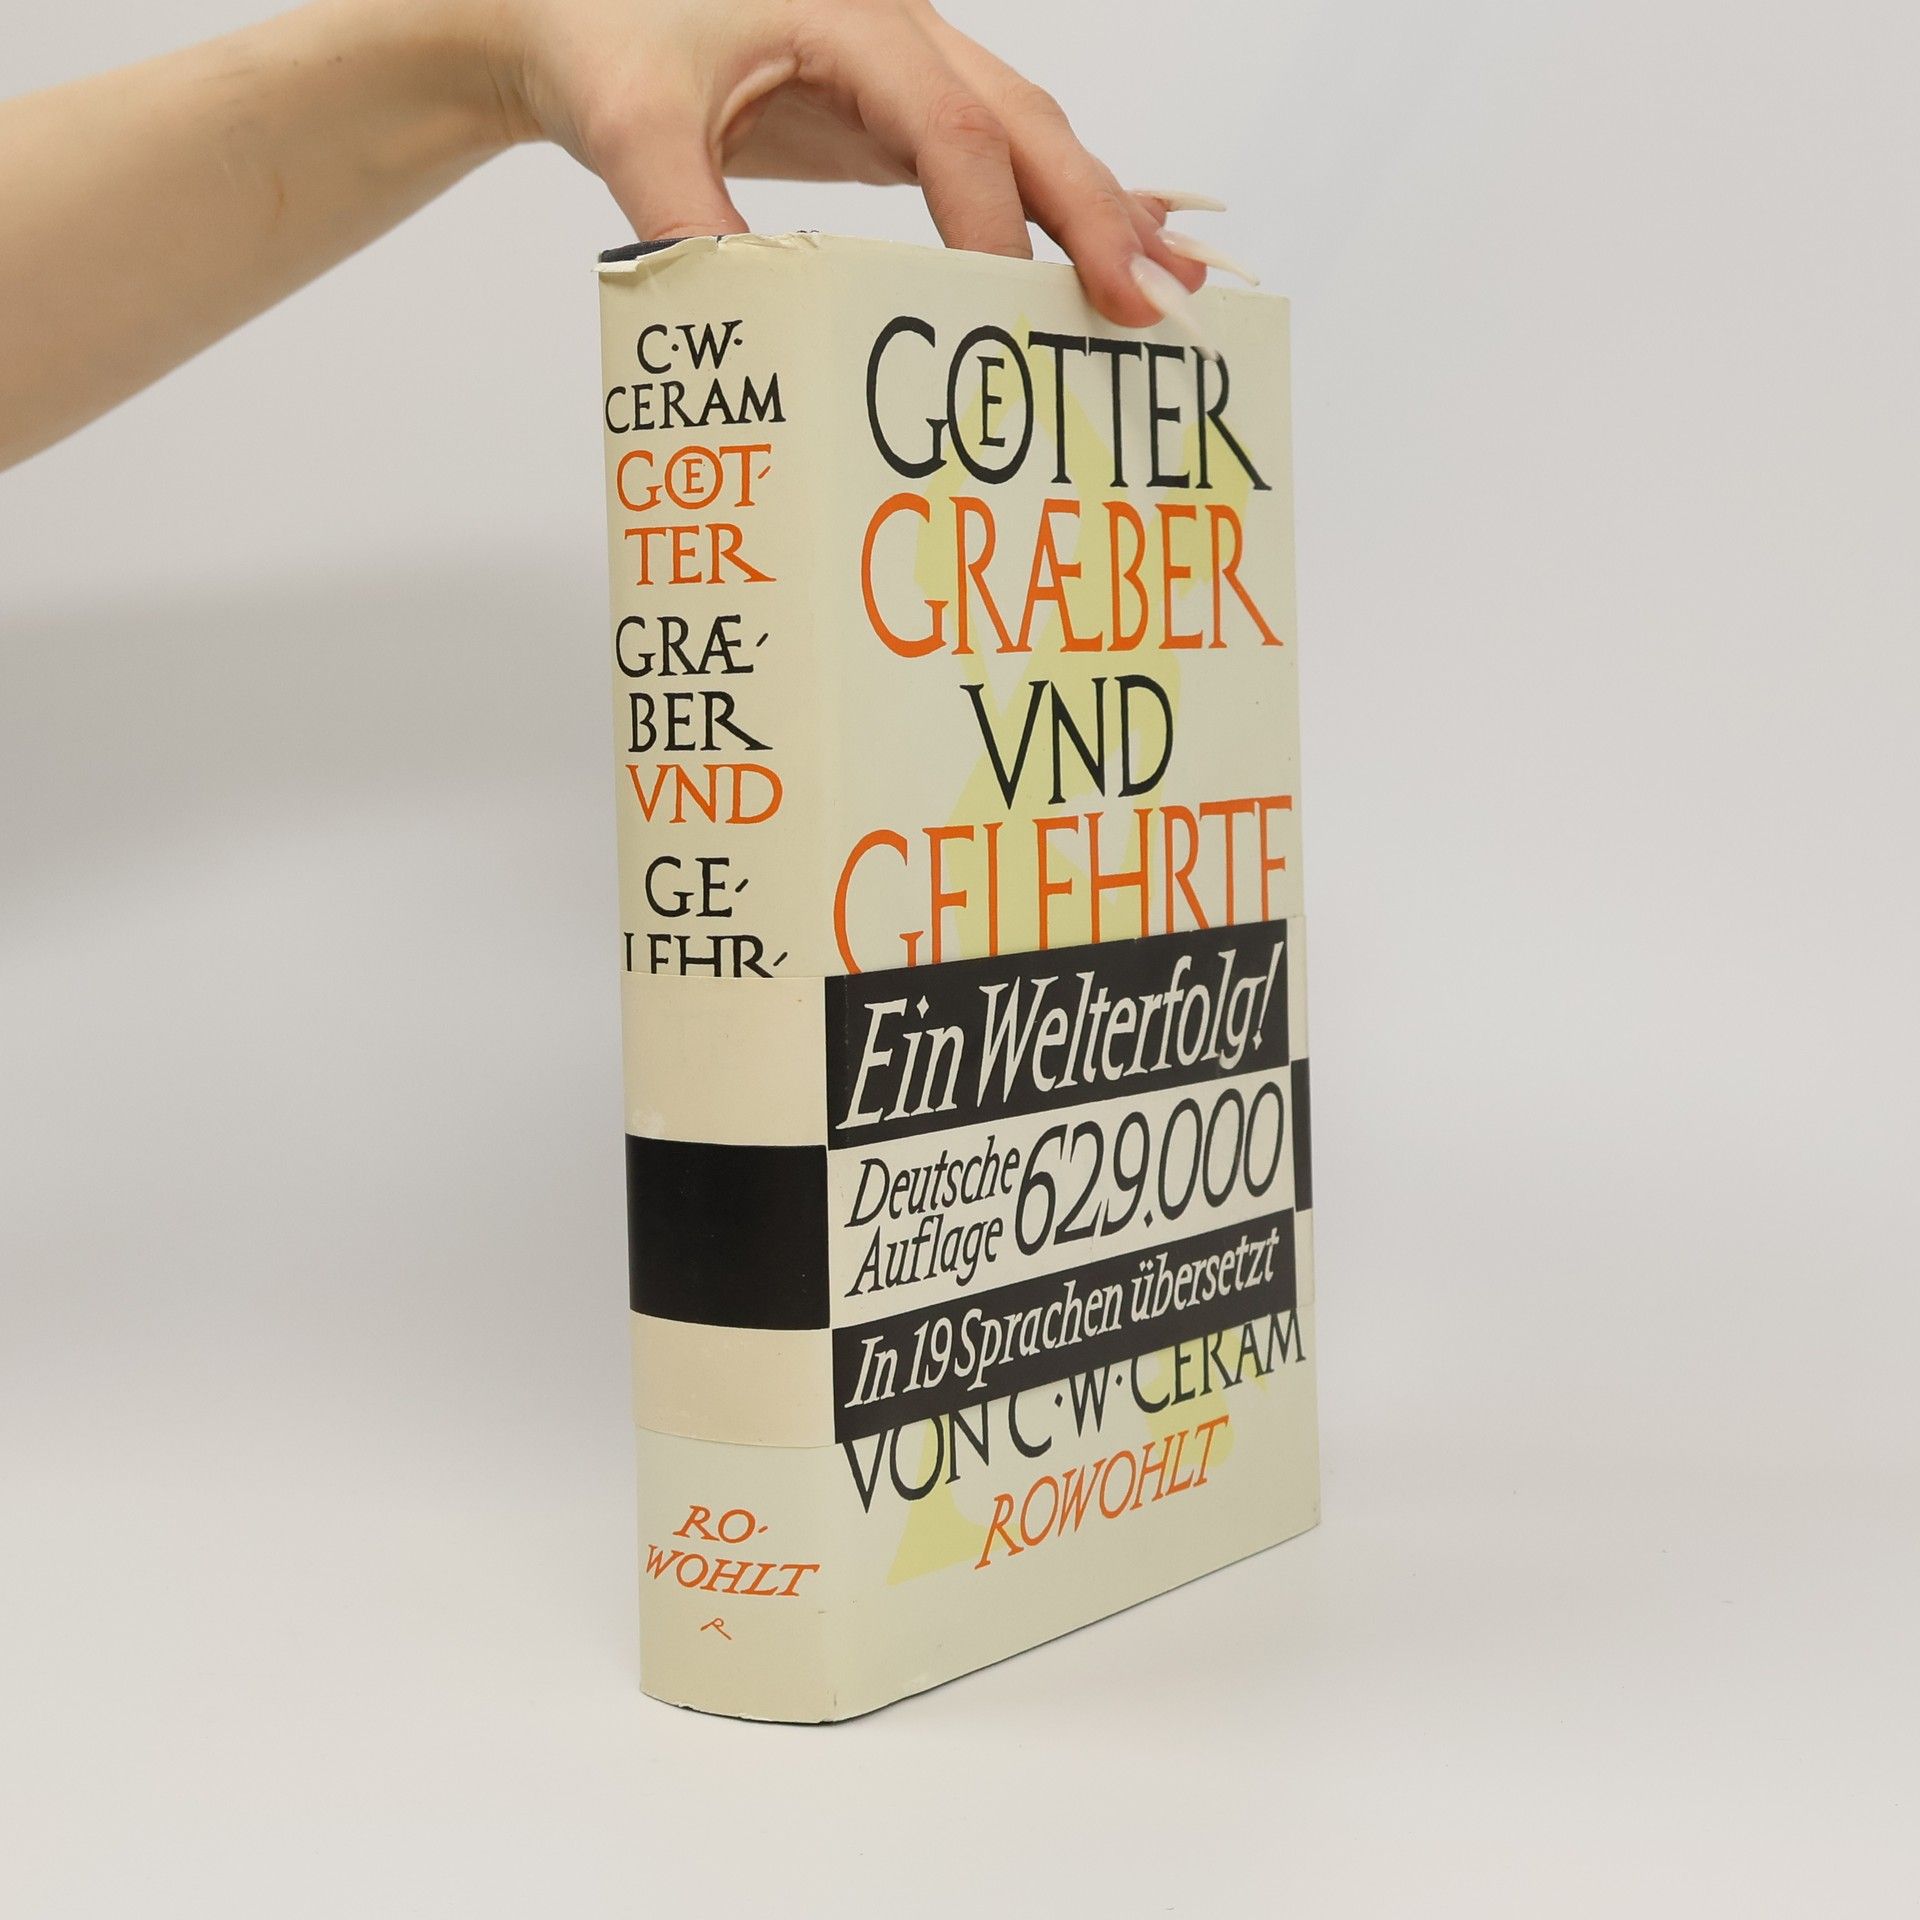 C·W·
CERAM
GOET-
TER
GRÆ-
BER
VND
GE-
LEHR-
RO-
WOHLT
R
GOETTER
GRÆBER
VND
GELEHRTE
Ein Welterfolg!
Deutsche
Auflage 629.000
In 19 Sprachen übersetzt
VON C·W·CERAM
ROWOHLT